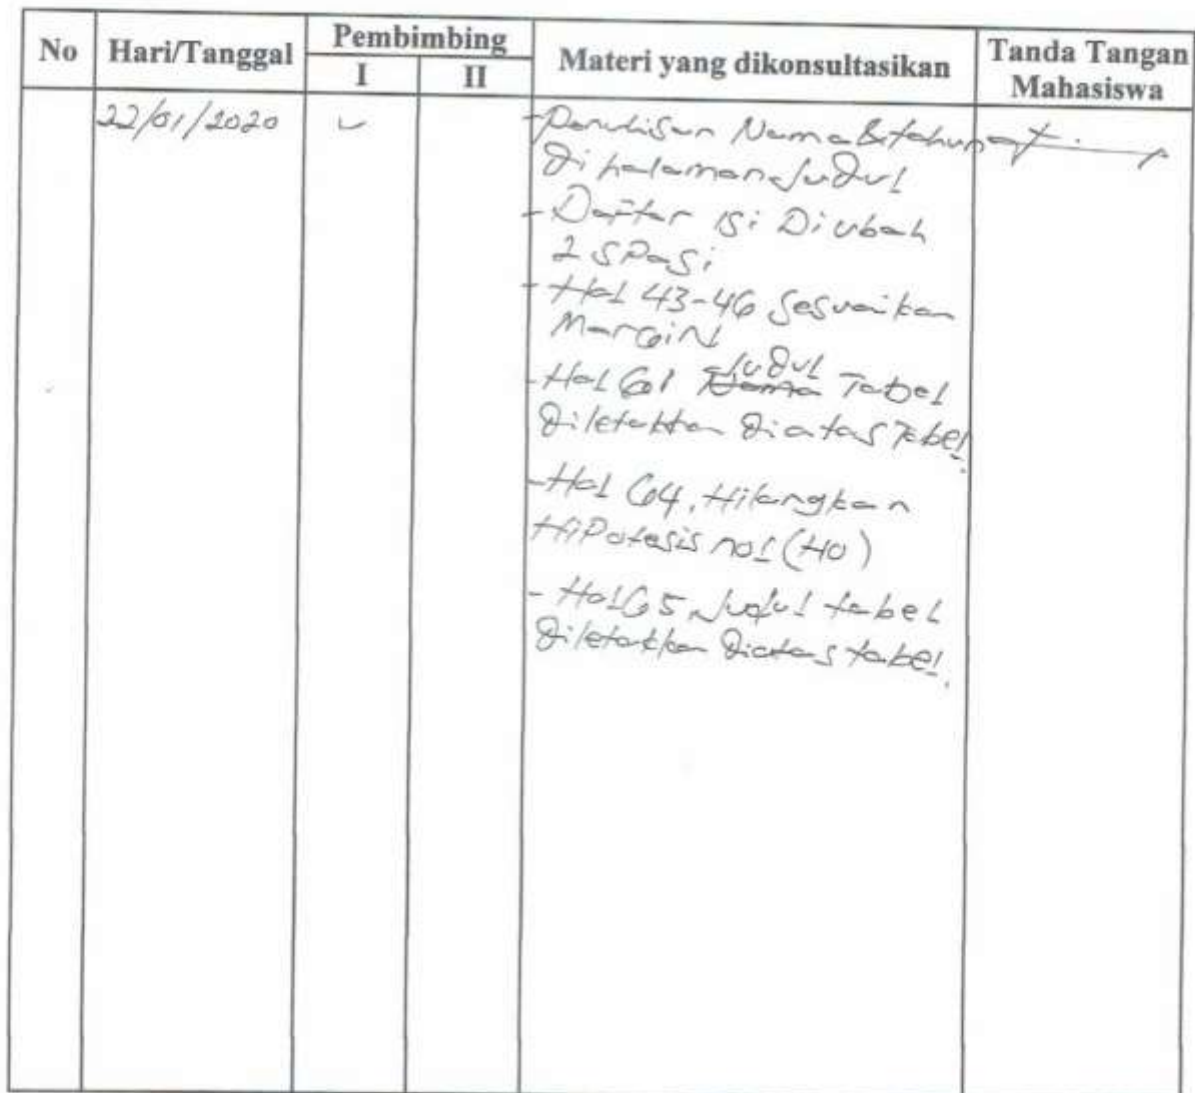 No Hari/Tanggal Pembimbing Materi yang dikonsultasikan Tanda Tangan Mahasiswa
I II
22/01/2020
- Penulisan Nama & tahun
Di halaman Judul
- Daftar isi Diubah
2 spasi
- Hal 43-46 Sesuaikan
Margin
- Hal 61 Judul Tabel
Diletakkan Diatas Tabel.
- Hal 64, Hilangkan
HiPotesis nol (H0)
- Hal 65, Judul tabel
Diletakkan Diatas tabel.